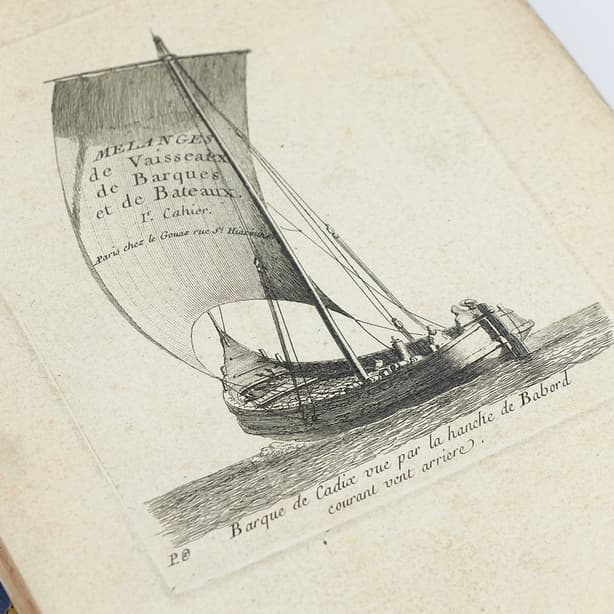 MELANGES
de Vaisseaux
de Barques
et de Bateaux.
Ir. Cahier.
Paris chez le Gouaz rue St Hiacinthe
Barque de Cadix vue par la hanche de Babord
courant vent arriere.
P.@